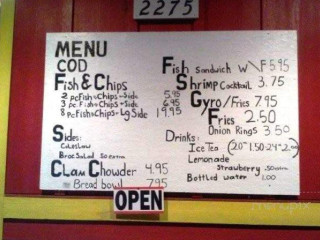 2275
MENU
COD
Fish & Chips
2 pc Fish & Chips - Side 5.95
3 pc. Fish & Chips + Side 6.95
8 pc Fish & Chips - Lg Side 19.95
Sides:
Coleslaw
Broc Salad .50 extra
Clam Chowder 4.95
Bread bowl 7.95
Fish Sandwich W F 5.95
Shrimp Cocktail 3.75
Gyro/Fries 7.95
Fries 2.50
Onion Rings 3.50
Drinks:
Ice Tea
Lemonade
Strawberry .50 extra
Bottled water 1.00
OPEN